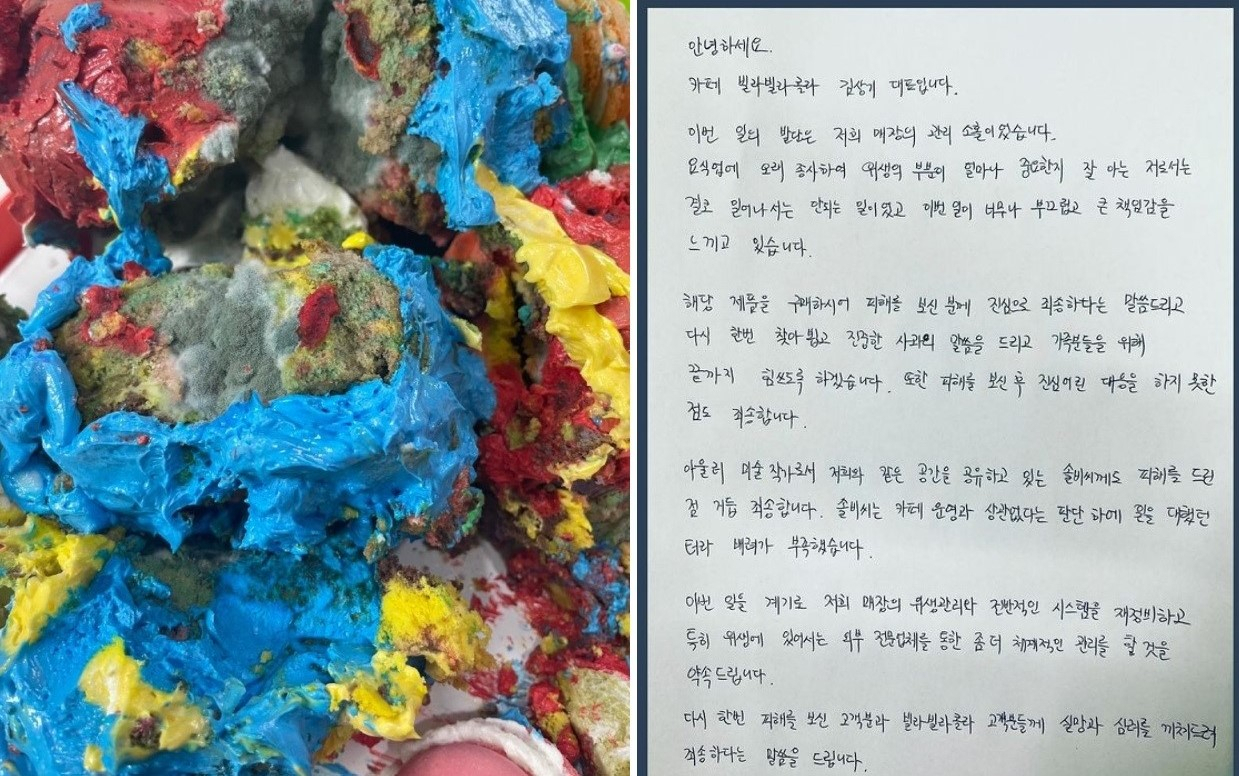 안녕하세요.
카페 빌라빌라콜라 김상기 대표입니다.
이번 일의 발단은 저희 매장의 관리 소홀이었습니다.
요식업에 오래 종사하여 위생의 부분이 얼마나 중요한지 잘 아는 저로서는
결코 일어나서는 안되는 일이었고 이번 일이 너무나 부끄럽고 큰 책임감을
느끼고 있습니다.
해당 제품을 구매하시어 피해를 보신 분께 진심으로 죄송하다는 말씀드리고
다시 한번 찾아 뵙고 진중한 사과의 말씀을 드리고 가족분들을 위해
끝까지 힘쓰도록 하겠습니다. 또한 피해를 보신 후 진심어린 대응을 하지 못한
점도 죄송합니다.
아울러 미술 작가로서 저희와 같은 공간을 공유하고 있는 솔비씨께도 피해를 드린
점 거듭 죄송합니다. 솔비씨는 카페 운영과 상관없다는 판단 하에 선을 대웠던
터라 배려가 부족했습니다.
이번 일을 계기로 저희 매장의 위생관리와 전반적인 시스템을 재정비하고
특히 위생에 있어서는 외부 전문업체를 통한 좀 더 체계적인 관리를 할 것을
약속드립니다.
다시 한번 피해를 보신 고객분과 빌라빌라콜라 고객분들께 실망과 심려를 끼쳐드려
죄송하다는 말씀을 드립니다.